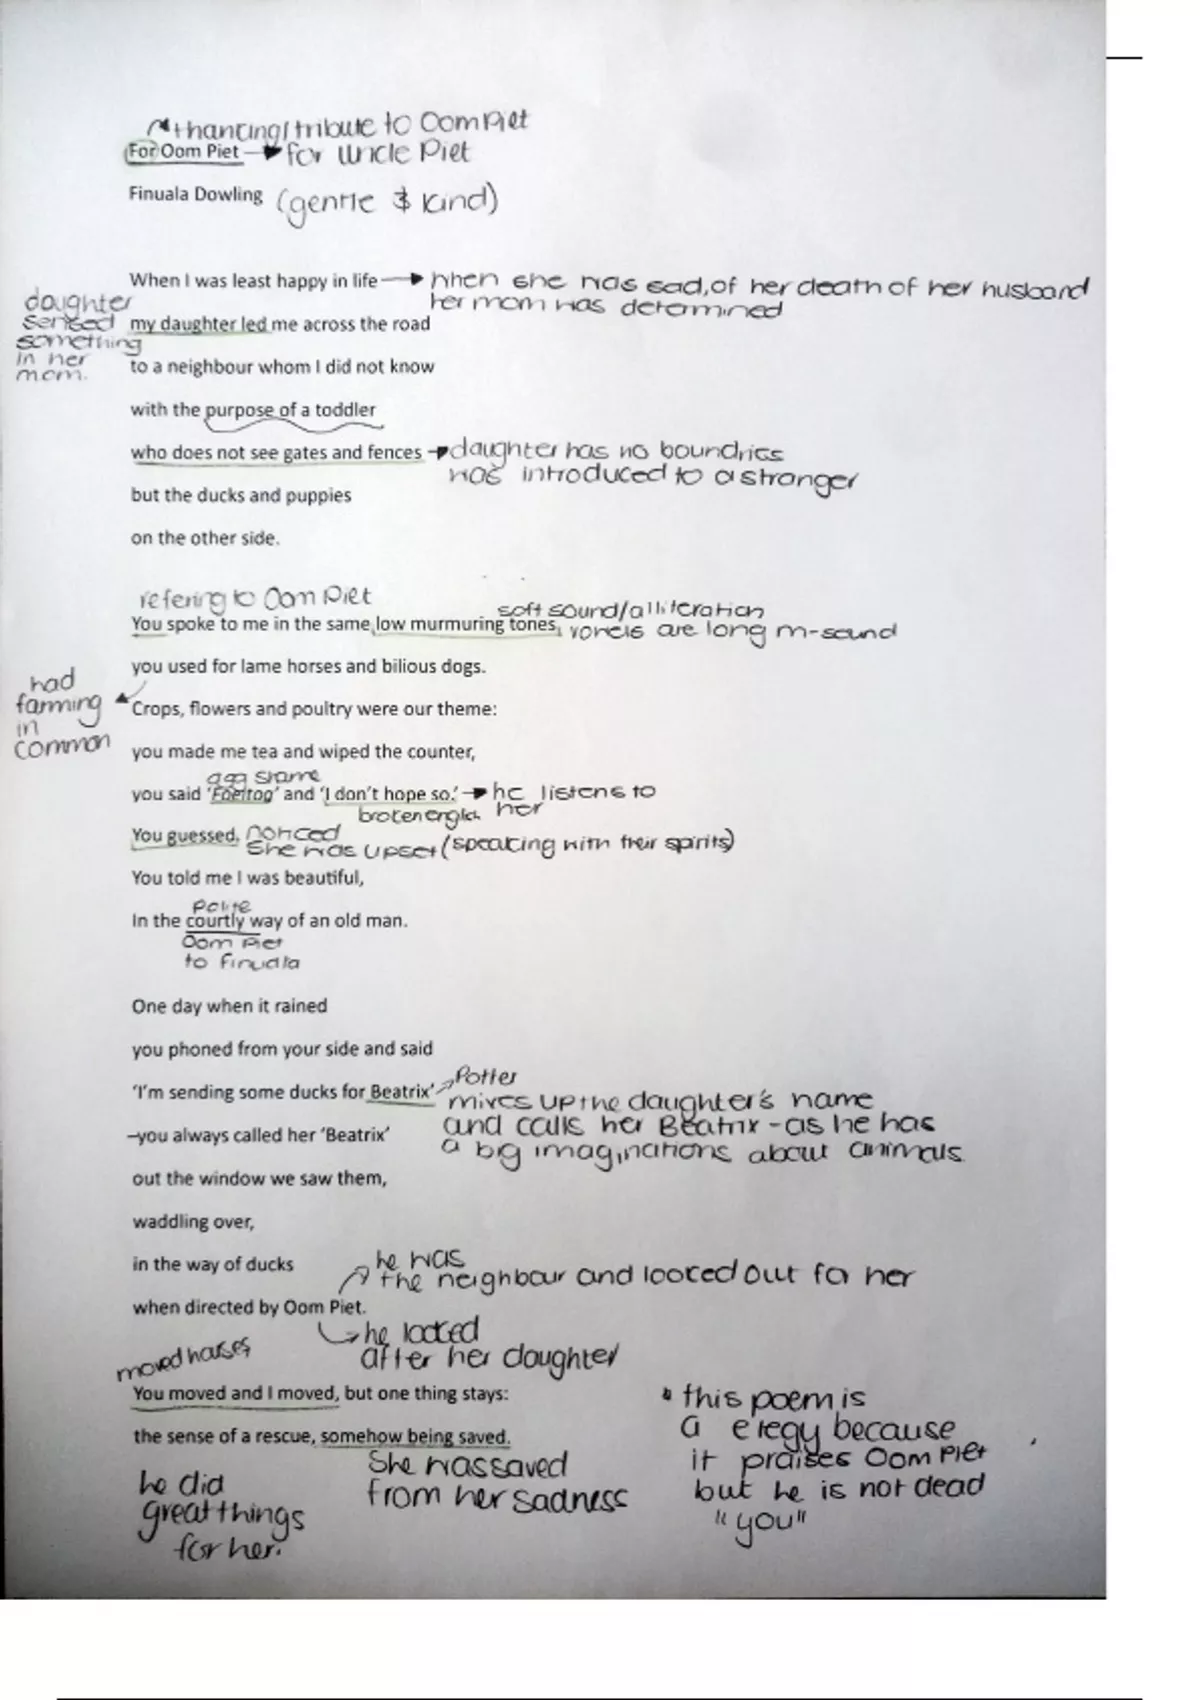 thancing/tribute to Oom Piet
For Oom Piet for Uncle Piet
Finuala Dowling (gentle & kind)
When I was least happy in life when she was sad, of her death of her husband
her mom was determined
daughter
sensed
something
in her
mom.
my daughter led me across the road
to a neighbour whom I did not know
with the purpose of a toddler
who does not see gates and fences daughter has no boundries
was introduced to a stranger
but the ducks and puppies
on the other side.
refering to Oom Piet
soft sound/alliteration
You spoke to me in the same low murmuring tones, vowels are long m-sound
you used for lame horses and bilious dogs.
had
farming
in
common
Crops, flowers and poultry were our theme:
you made me tea and wiped the counter,
agg shame
you said 'Foeitog' and 'I don't hope so.' he listens to
her
broken english
You guessed. noticed
she was upset (speaking with their spirits)
You told me I was beautiful,
polite
In the courtly way of an old man.
Oom Piet
to Finuala
One day when it rained
you phoned from your side and said
'I'm sending some ducks for Beatrix' Potter
mixes up the daughter's name
and calls her Beatrix - as he has
a big imaginations about animals.
–you always called her 'Beatrix'
out the window we saw them,
waddling over,
in the way of ducks
he was
the neighbour and looked out for her
when directed by Oom Piet.
he looked
after her daughter
moved houses
You moved and I moved, but one thing stays:
the sense of a rescue, somehow being saved.
he did
great things
for her.
She was saved
from her sadness
this poem is
a elegy because
it praises Oom Piet
but he is not dead
"you"